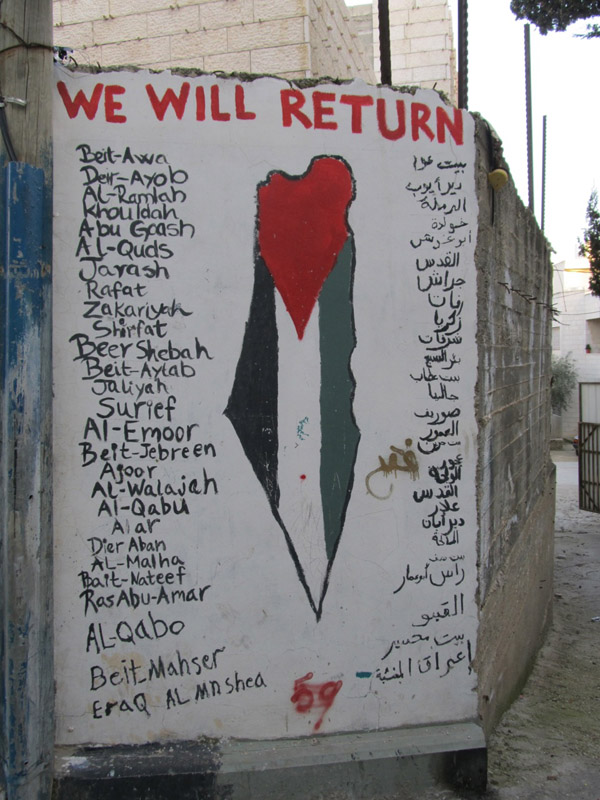 WE WILL RETURN
Beit-Awa
Deir-Ayob
AL-Ramlah
Khouldah
Abu Goash
AL-Quds
Jarash
Rafat
Zakariyah
Shirfat
Beer Shebah
Beit-Aytab
Jaliyah
Surief
AL-Emoor
Beit-Jebreen
Ajoor
AL-Walajah
AL-Qabu
Alar
Dier Aban
AL-Malha
Bait-Nateef
Ras Abu-Amar
AL-Qabo
Beit Mahser
EraQ AL Mnshea
بيت عوا
دير أيوب
الرملة
خولدة
أبو غوش
القدس
جراش
رفات
زكريا
شرفات
بئر السبع
بيت عطاب
جاليا
صوريف
العمور
عجور
الولجة
القدس
علار
دير أبان
المالحة
راس أبو عمار
القبو
بيت محسير
عراق المنشية
59